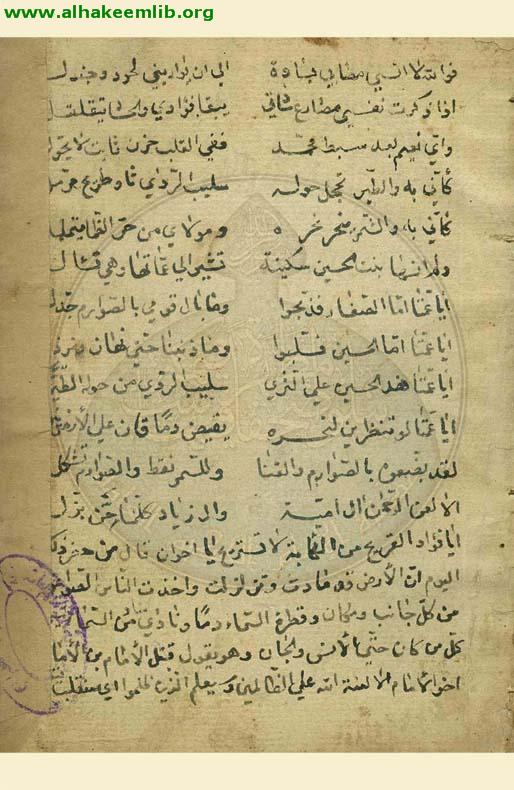 www.alhakeemlib.org
فوالله لا انسي مصابي بسادة الى ان يواريني لحود وجندل
اذا ذكرت نفسي مصارع سادتي يبقا فؤادي والحشا يتقلقل
واني نعيم بعد سبط محمد ففي القلب حزن ثابت لا يتحول
كأني به والطير تحجل حوله سليب الردي ثاو طريح
كأني به والشمر ينحر نحره ومولاي من حر الظما
ولم انس بنت الحسين سكينة تشير الى عماتها وهي
ايا عمتا اما الصغار فذبحوا وما بال قومي بالصوارم
ايا عمتا اما الحسين فسلبوا وما ذنبنا حتى نهان
ايا عمتا هذا الحسين علي الثري سليب الردي من حوله
ايا عمتا لو تنظرين لنحره يفيض دما قان علي الأرض
لقد بضعوه بالصوارم والقنا وللسمر نقط والصوارم تشكل
الا لعن الرحمن ال امية وال زياد كلما
ايا فؤاد القريح من الكآبة لا تستريح ايا اخوان قال من حضر
اليوم ان الأرض قد مادت وتزلزلت واخذت الناس الصواعق
من كل جانب ومكان وقطرة السماء دما ونادي من السماء
كل من كان حتى الأنس والجان وهو يقول قتل الأمام بن الأمام
اخو الأمام الا لعنة الله علي الظالمين وسيعلم الذين ظلموا اي منقلب